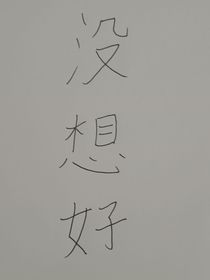 没想好